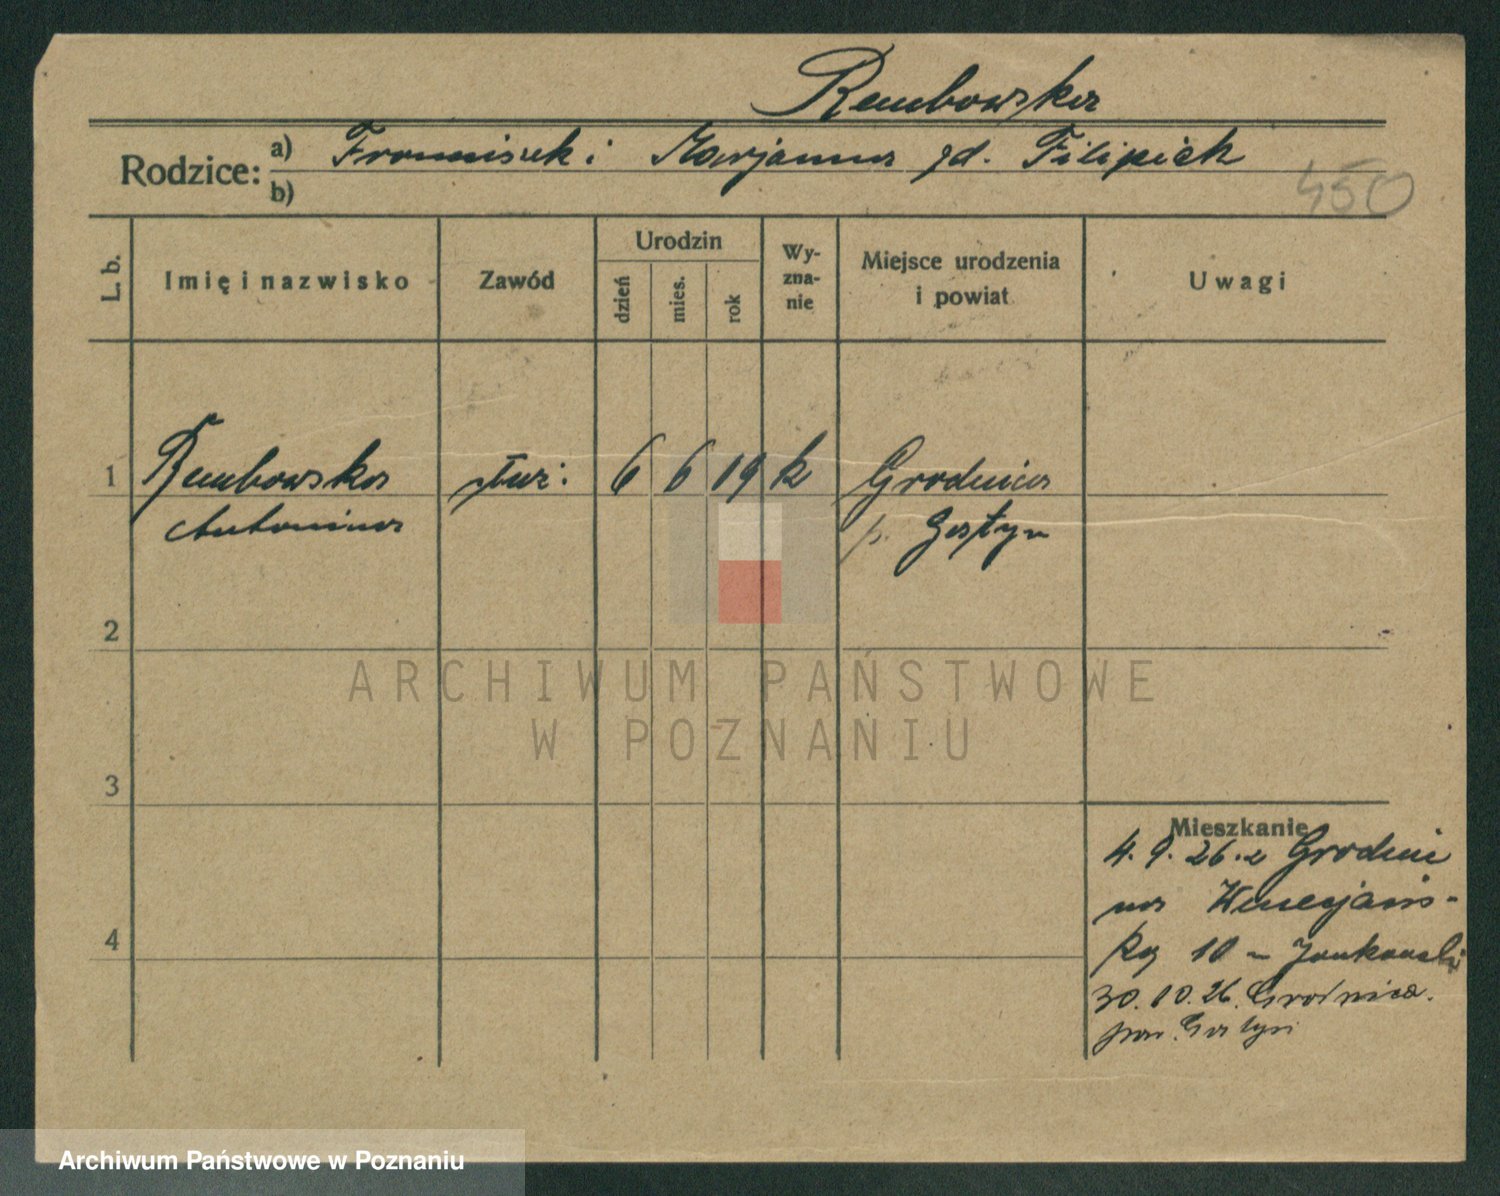 Rembowska
Rodzice: a) Franciszek i Marjanna zd. Filipiak
b)
450
L. b.
Imię i nazwisko
Zawód
Urodzin
dzień
mies.
rok
Wy-
zna-
nie
Miejsce urodzenia
i powiat
Uwagi
1 Rembowska służ. 6 6 19 k Grodnica
Antonina p. Gostyn
2
3
4
Mieszkanie
4.9.26. z Grodni
na Wenecjańs-
ka 10 - Jankowski
30.10.26. Grodnica.
pow. Gostyn
ARCHIWUM PAŃSTWOWE
W POZNANIU
Archiwum Państwowe w Poznaniu